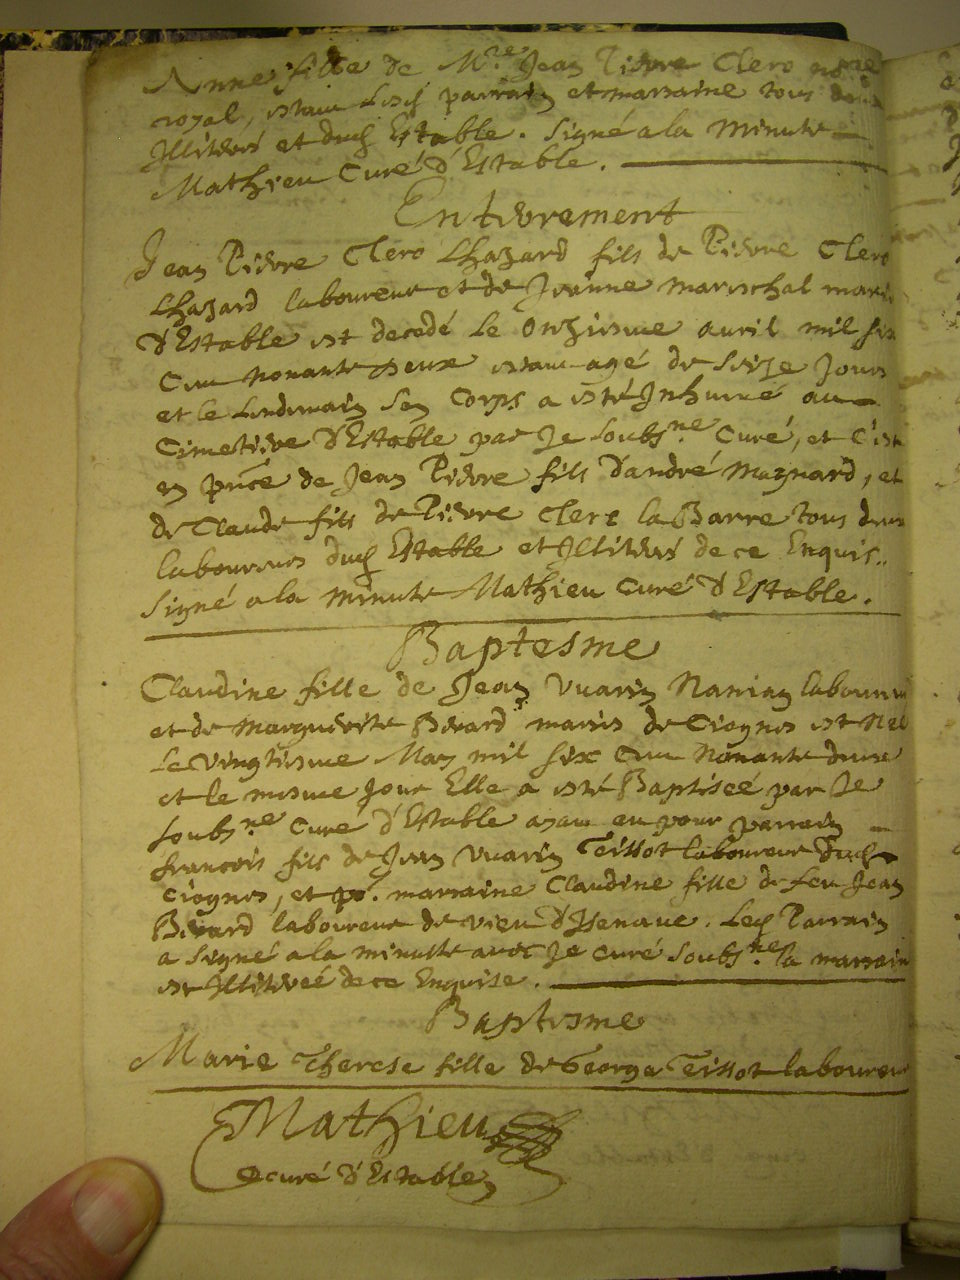 Anne fille de M.re Jean Pierre Clerc no.re
royal, estant lesd parrain et marraine tous deux
Illiteré et dud Estable. Signé a la Minute
Mathieu Curé d'Estable.
Enterrement
Jean Pierre Clerc Lhazard fils de Pierre Clerc
Lhazard laboureur et de Jeanne Mareschal marié
d'Estable est decedé le Onzieme avril mil six
Cent Nonante deux estant agé de Seize Jours
et le Lendemain Son Corps a esté Inhumé au
Cimetiere d'Estable par Je Soubs.né Curé, et C'est
en prñce de Jean Pierre fils d'andré Maynard, et
de Claude fils de Pierre Clerc la Barre tous deux
laboureurs dud Estable et Illiteré de ce Enquis..
Signé a la Minute Mathieu Curé d'Estable.
Baptesme
Claudine fille de Jean Vuarin Nanian laboureur
et de Marguerite Berard mariés de Ciognes est Nee
Le Vingtieme May mil six Cent Nonante deux
et le mesme Jour Elle a esté Baptiseé par Je
Soubs.né Curé d'Estable ayant eu pour parrain
francois fils de Jean Vuarin Teissot laboureur dud
Ciognes, et pr. marraine Claudine fille de feu Jean
Berard laboureur de Vieu d'Isenave. Led Parrain
a Signé a la minutte avec Je Curé Soubs.né la marraine
est Illitereé de ce Enquise.
Baptesme
Marie Therese fille de George Teissot laboureur
Mathieu
curé d'Estable